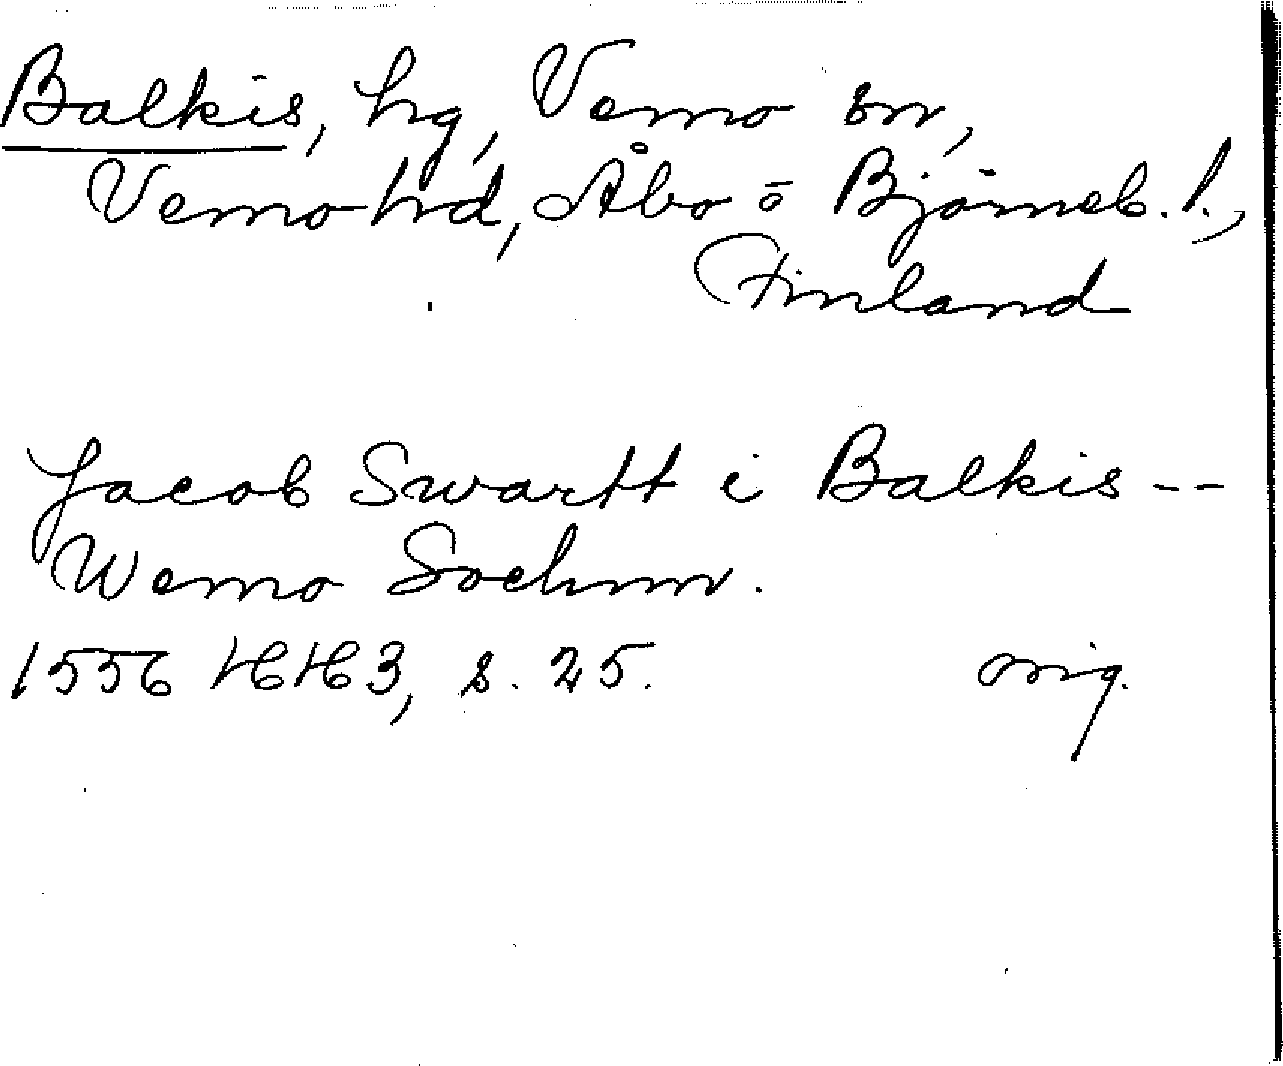 Balkis, hg, Vemo sn,
Vemo hd, Åbo o Björneb. l.,
Finland
Jacob Swartt i Balkis --
Wemo Sochnn.
1556 HH 3, s. 25. orig.